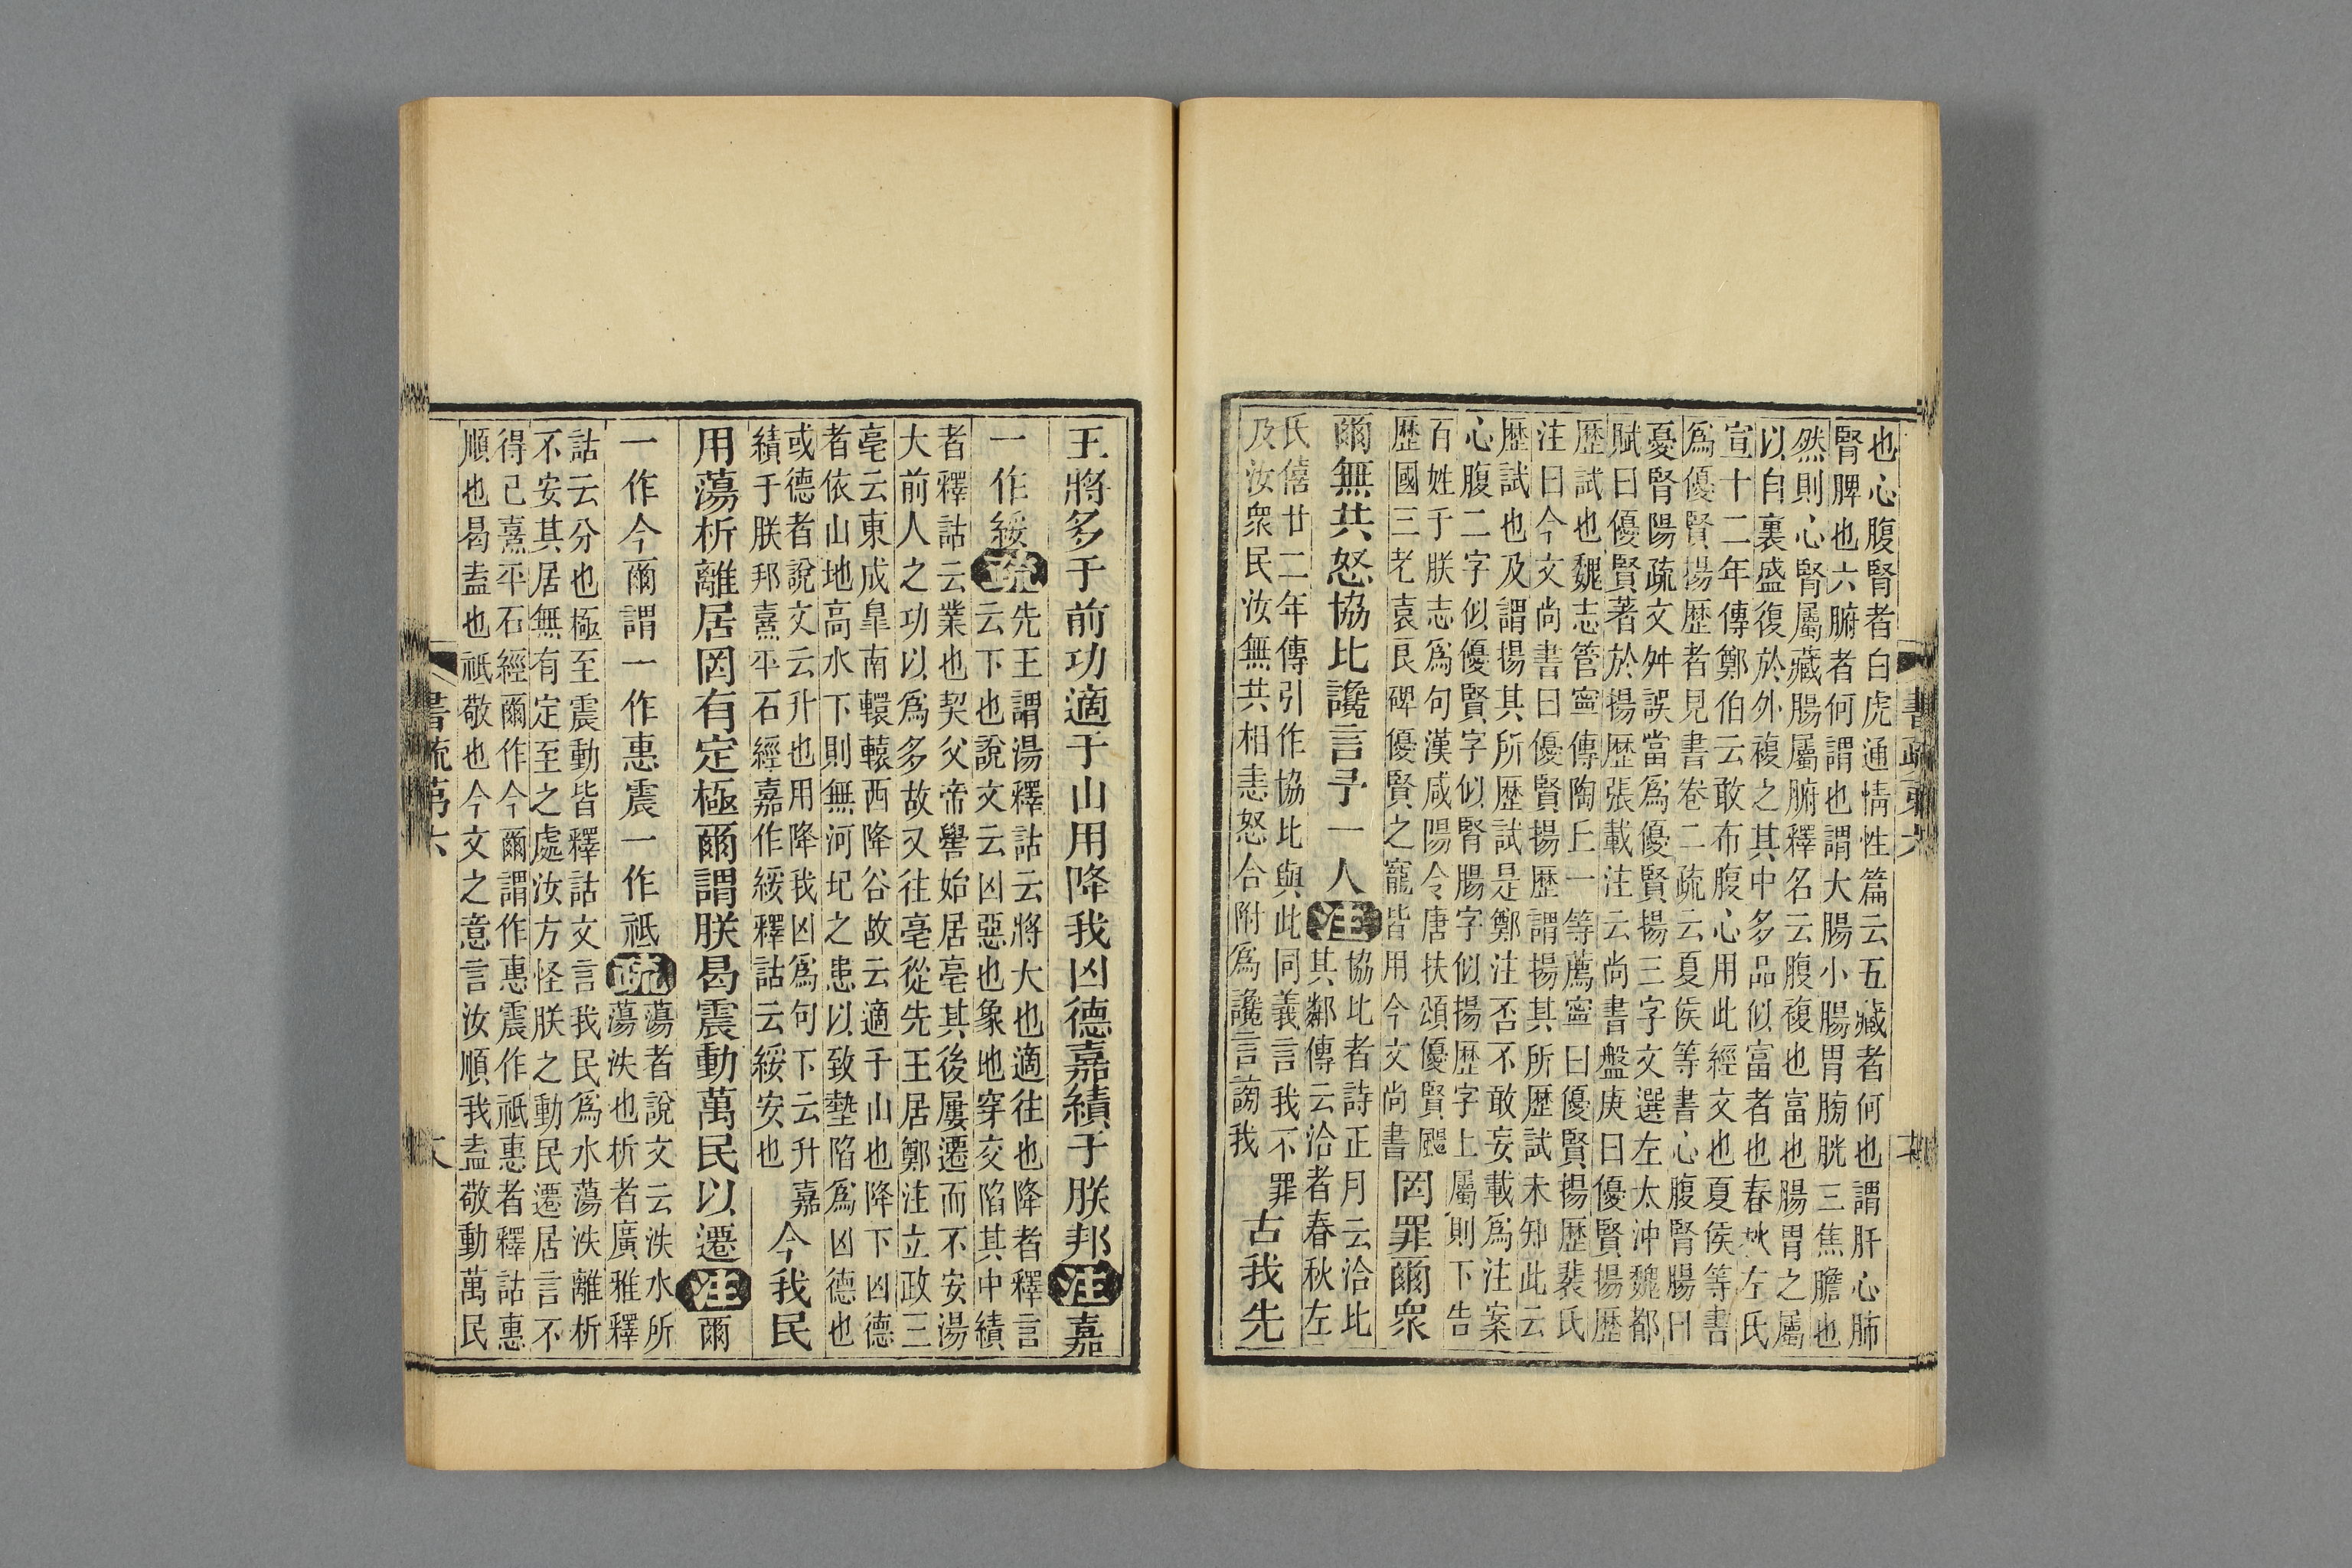 書疏弟六
也心腹腎者白虎通情性篇云五藏者何也謂肝心肺
腎脾也六腑者何謂也謂大腸小腸胃膀胱三焦膽也
然則心腎屬藏腸屬腑釋名云腹複也富也腸胃之屬
以自裏盛復於外複之其中多品似富者也春秋左氏
宣十二年傳鄭伯云敢布腹心用此經文也夏侯等書
爲優賢揚歴者見書卷二疏云夏侯等書心腹腎腸曰
憂腎陽疏文舛誤當爲優賢揚三字文選左太沖魏都
賦曰優賢著於揚歴張載注云尚書盤庚曰優賢揚歴
歴試也魏志管寧傳陶丘一等薦寧曰優賢揚歴裴氏
注曰今文尚書曰優賢揚歴謂揚其所歴試未知此云
歴試也及謂揚其所歴試是鄭注否不敢妄載爲注案
心腹二字似優賢字似腎腸字似揚歴字上屬則下告
百姓于朕志爲句漢咸陽令唐扶頌優賢颺
歴國三老袁良碑優賢之寵皆用今文尚書
罔罪爾衆
爾無共怒協比讒言予一人注
協比者詩正月云洽比
其鄰傳云洽者春秋左
氏僖廿二年傳引作協比與此同義言我不罪
及汝衆民汝無共相恚怒合附爲讒言謗我
古我先
王將多于前功適于山用降我凶德嘉績于朕邦注嘉
一作綏疏
先王謂湯釋詁云將大也適往也降者釋言
云下也說文云凶惡也象地穿交陷其中績
者釋詁云業也契父帝嚳始居亳其後屢遷而不安湯
大前人之功以爲多故又往亳從先王居鄭注立政三
亳云東成皐南轘轅西降谷故云適于山也降下凶德
者依山地高水下則無河圮之患以致墊陷爲凶德也
或德者說文云升也用降我凶爲句下云升嘉
績于朕邦熹平石經嘉作綏釋詁云綏安也
今我民
用蕩析離居罔有定極爾謂朕曷震動萬民以遷注爾
一作今爾謂一作惠震一作祗疏
蕩者說文云泆水所
蕩泆也析者廣雅釋
詁云分也極至震動皆釋詁文言我民爲水蕩泆離析
不安其居無有定至之處汝方怪朕之動民遷居言不
得已熹平石經爾作今爾謂作惠震作祗惠者釋詁惠
順也曷盍也祗敬也今文之意言汝順我盍敬動萬民
書疏弟六